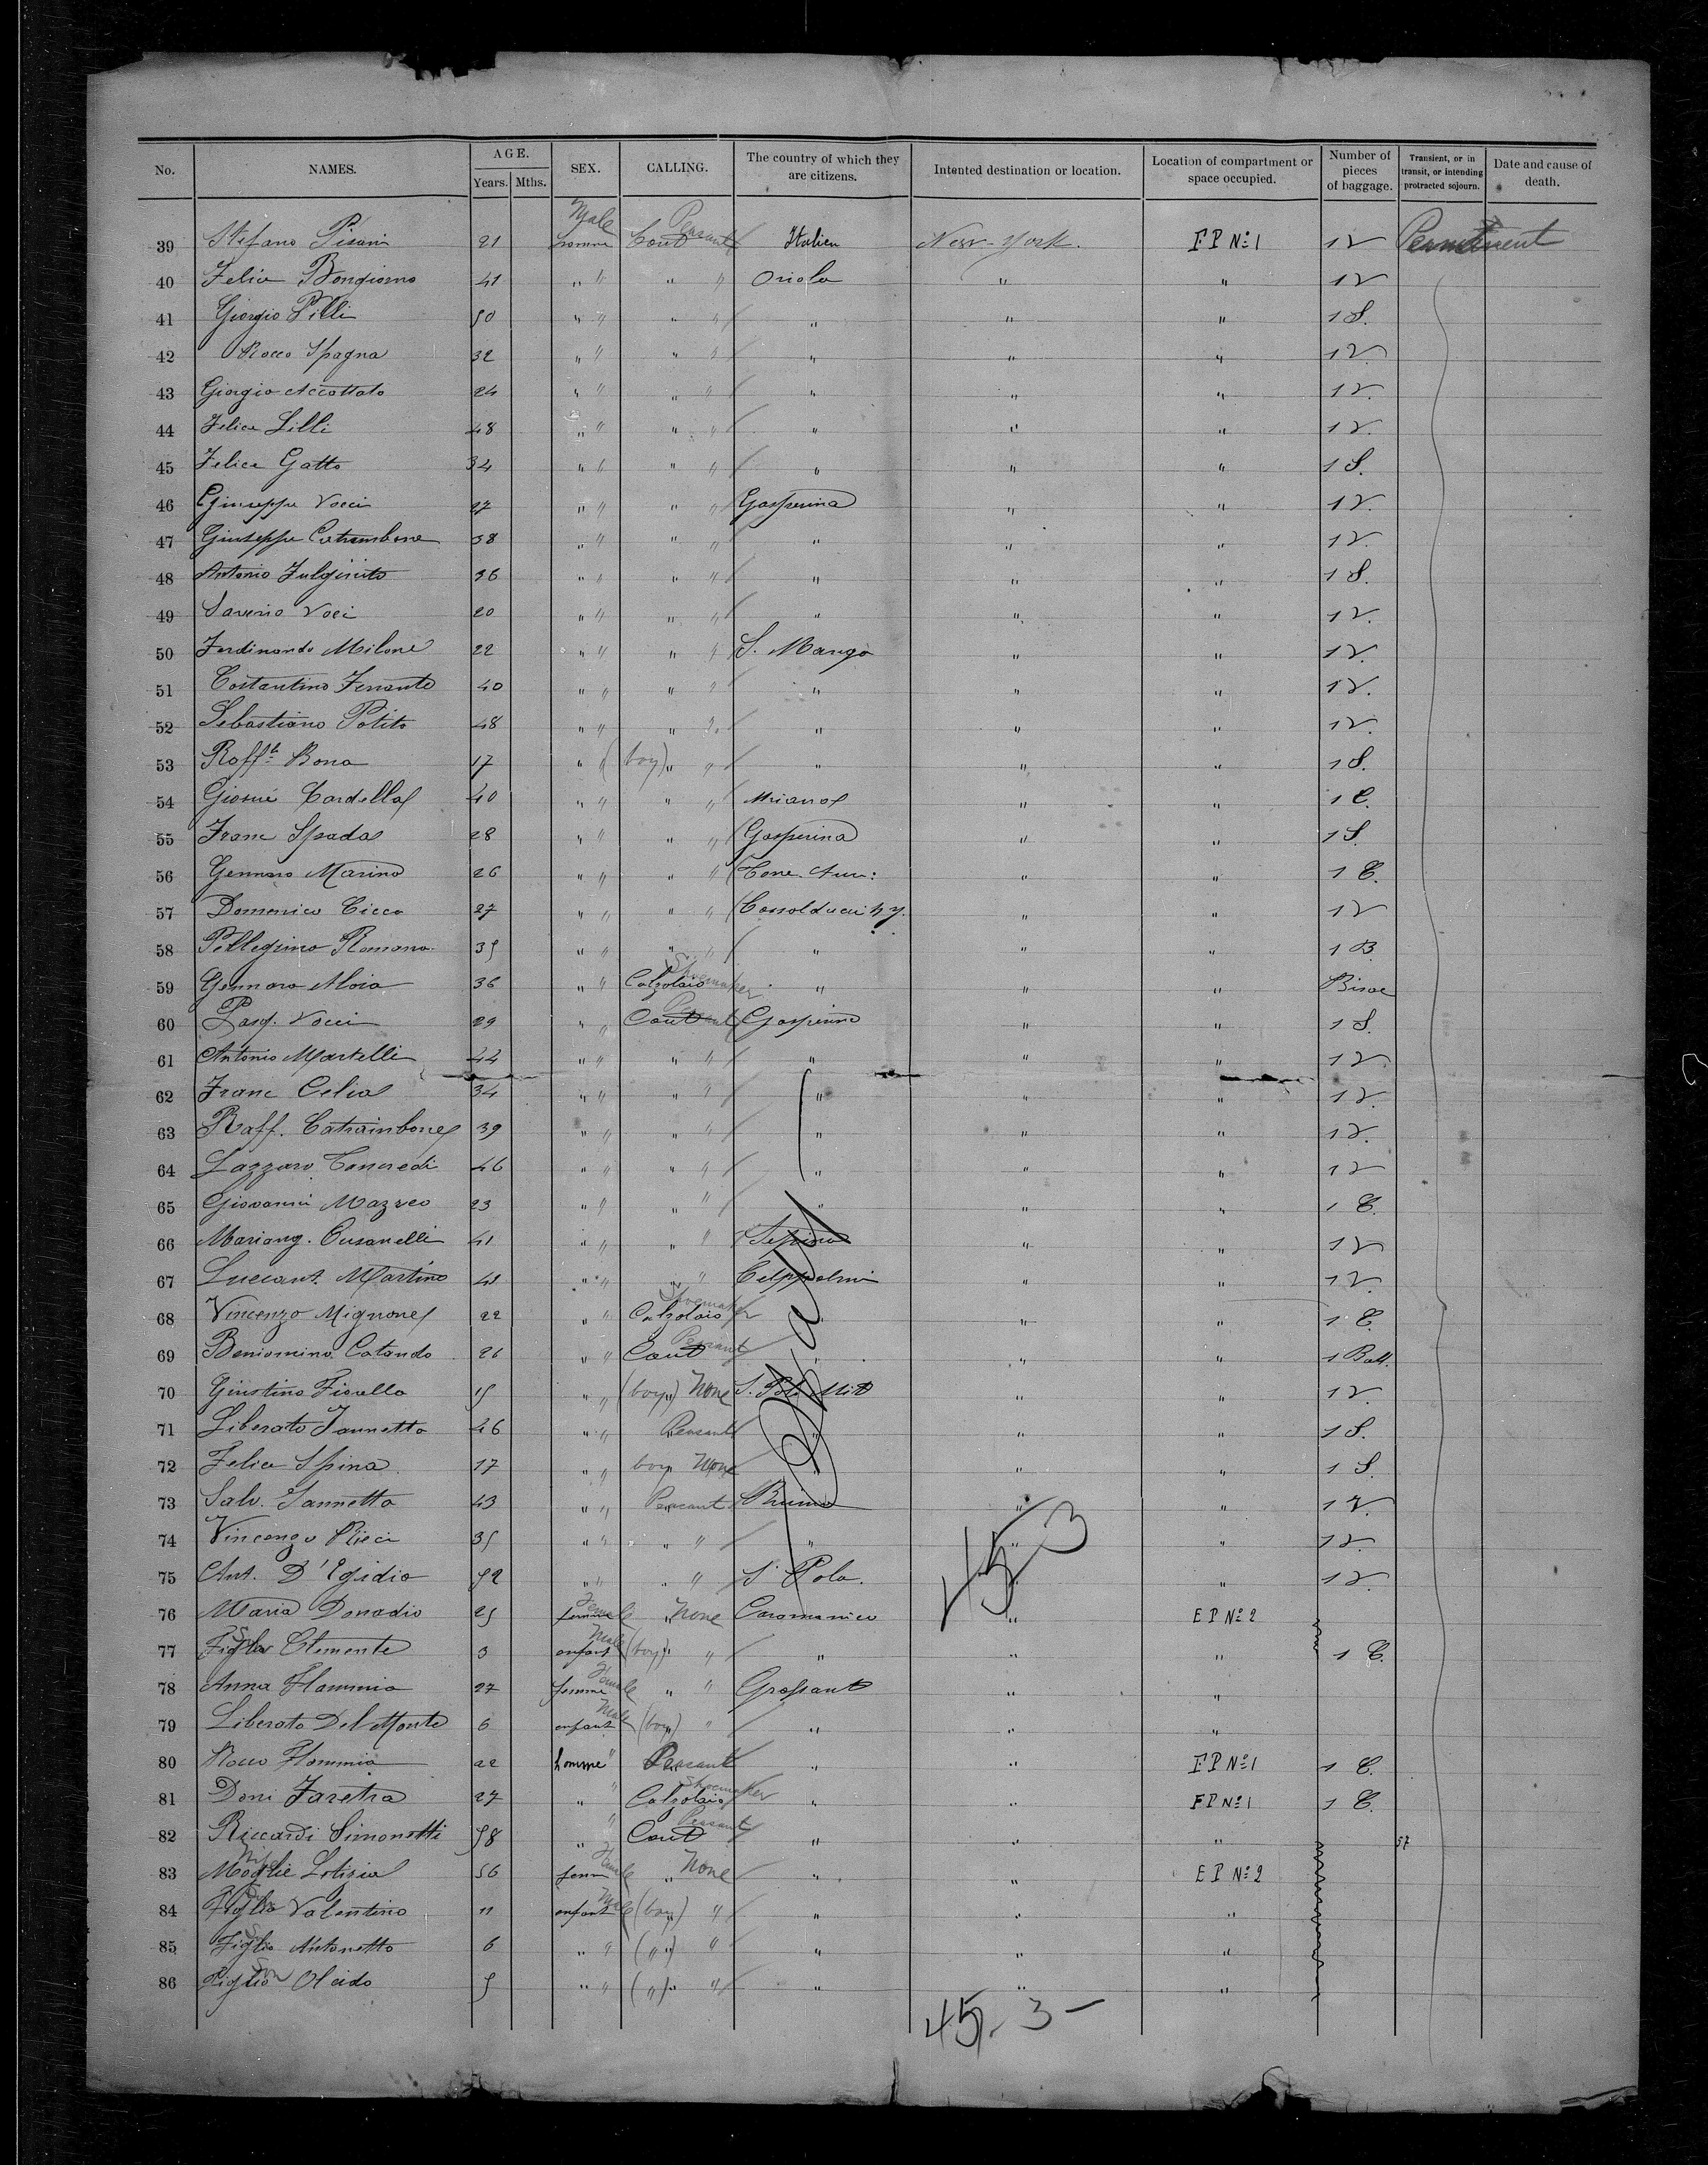 No. NAMES. AGE. Years. Mths. SEX. CALLING. The country of which they are citizens. Intented destination or location. Location of compartment or space occupied. Number of pieces of baggage. Transient, or in transit, or intending protracted sojourn. Date and cause of death.
39 Stefano Pisani 21 Male homme Cont Peasant Italien New-York. F P No 1 1 V Permanent
40 Felice Bongiorno 41 " " " " Oriolo " " 1 V
41 Giorgio Pilli 50 " " " " " " " 1 S.
42 Rocco Spagna 32 " " " " " " " 1 V.
43 Giorgio Accattato 24 " " " " " " " 1 V.
44 Felice Lilli 48 " " " " " " " 1 V.
45 Felice Gatto 34 " " " " " " " 1 S.
46 Giuseppe Vocci 27 " " " " Gasperina " " 1 V.
47 Giuseppe Catrambone 38 " " " " " " " 1 V.
48 Antonio Fulginito 36 " " " " " " " 1 S.
49 Saverio Voci 20 " " " " " " " 1 V.
50 Ferdinando Milone 22 " " " " S. Mango " " 1 V.
51 Costantino Ferrante 40 " " " " " " " 1 V.
52 Sebastiano Potito 48 " " " " " " " 1 V.
53 Raff.le Bona 17 " " (boy) " " " " " 1 S.
54 Giosué Cardella 40 " " " " " " 1 C.
55 Franc Spada 28 " " " " Gasperina " " 1 S.
56 Gennaro Marino 26 " " " " " " 1 C.
57 Domenico Cicco 27 " " " " " " 1 V
58 Pellegrino Romano 35 " " " " " " " 1 B
59 Gennaro Aloia 36 " " Calzolaio Shoemaker " " " Bisac
60 Pasq. Vocci 29 " " Cont Peasant Gasperina " " 1 S.
61 Antonio Martelli 44 " " " " " " " 1 V
62 Franc Celia 34 " " " " " " " 1 V.
63 Raff. Catrambone 39 " " " " " " " 1 V.
64 Lazzaro Tancredi 46 " " " " " " " 1 V
65 Giovanni Mazzeo 23 " " " " " " " 1 C.
66 Mariang. Cusanelli 41 " " " " Sepino " " 1 V
67 Luccant. Martino 43 " " " " " " 1 V.
68 Vincenzo Mignone 22 " " Calzolaio Shoemaker " " 1 C.
69 Beniamino Catando 26 " " Cont Peasant " " " 1 Ball.
70 Giustino Fiorella 15 " " (boy) " None S. Polo Mit " " 1 V
71 Liberato Iannetta 46 " " " Peasant " " " 1 S.
72 Felice Spina 17 " " boy None " " " 1 S.
73 Salv. Iannetta 43 " " Peasant " " 1 V.
74 Vincenzo Ricci 35 " " " " " " " 1 V.
75 Ant. D'Egidio 52 " " " " S. Polo. " " 1 V
76 Maria Donadio 25 femme Female " None Caramanico " E P No 2
77 Figlio Son Clemente 3 enfant Male (boy) " " " " " 1 C.
78 Anna Flamminia 27 femme Female " " " "
79 Liberato Del Monte 6 enfant Male (boy) " " " "
80 Rocco Flamminia 22 homme " Peasant " " F P No 1 1 C.
81 Doni Faretra 27 " " Calzolaio Shoemaker " " F P No 1 1 C.
82 Riccardi Simonetti 58 " " Cont Peasant " " " 57
83 Moglie Wife Letizia 56 femme Female " None " " E P No 2
84 Figlio Son Valentino 11 enfant Male (boy) " " " "
85 Figlio Son Antonetto 6 " " (") " " " "
86 Figlio Son Olcido 5 " " (") " " " "
45-3
45-3-